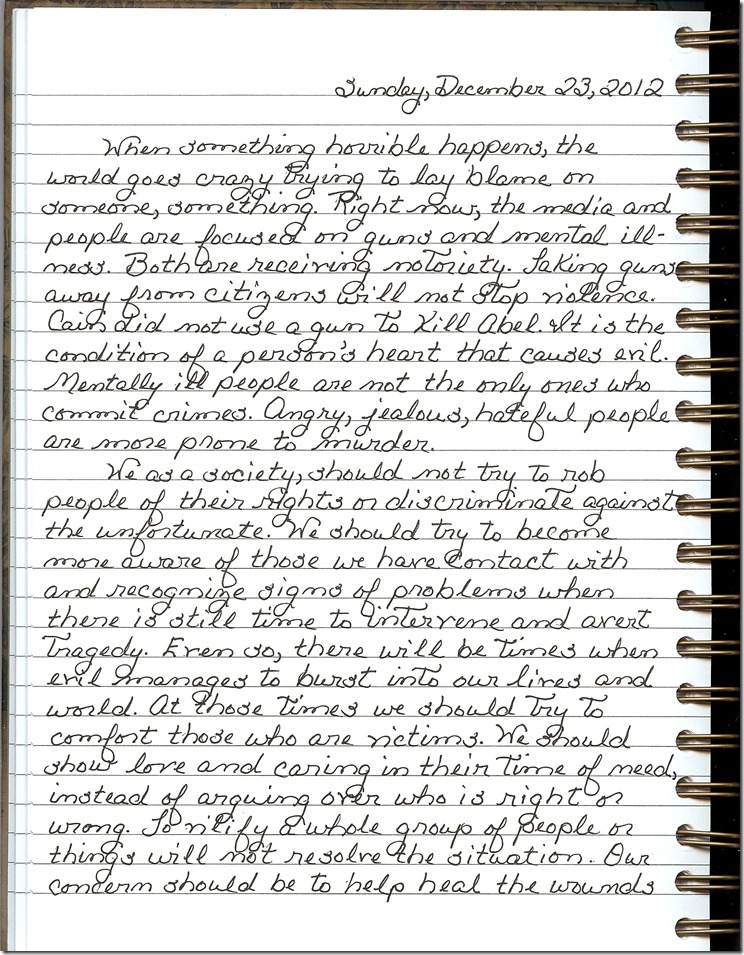 Sunday, December 23, 2012
When something horrible happens, the
world goes crazy trying to lay blame on
someone, something. Right now, the media and
people are focused on guns and mental ill-
ness. Both are receiving notoriety. Taking guns
away from citizens will not stop violence.
Cain did not use a gun to kill Abel. It is the
condition of a person's heart that causes evil.
Mentally ill people are not the only ones who
commit crimes. Angry, jealous, hateful people
are more prone to murder.
We as a society, should not try to rob
people of their rights or discriminate against
the unfortunate. We should try to become
more aware of those we have contact with
and recognize signs of problems when
there is still time to intervene and avert
tragedy. Even so, there will be times when
evil manages to burst into our lives and
world. At those times we should try to
comfort those who are victims. We should
show love and caring in their time of need,
instead of arguing over who is right or
wrong. To vilify a whole group of people or
things will not resolve the situation. Our
concern should be to help heal the wounds